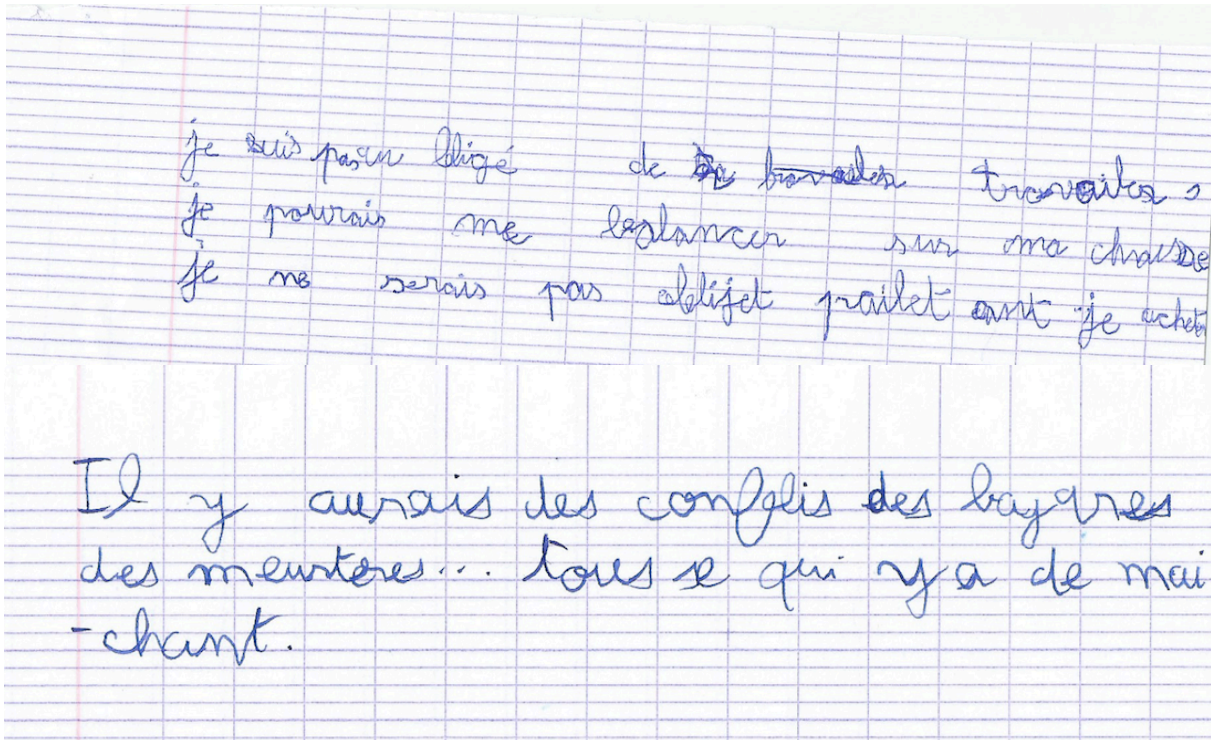 je suis pasun bligé de travailes,
je pourais me balancer sur ma chaisse
je ne serais pas oblijet pailet ant je achet
Il y aurais des conflis des bagares
des meurteres... tous se qui y a de mai
-chant.